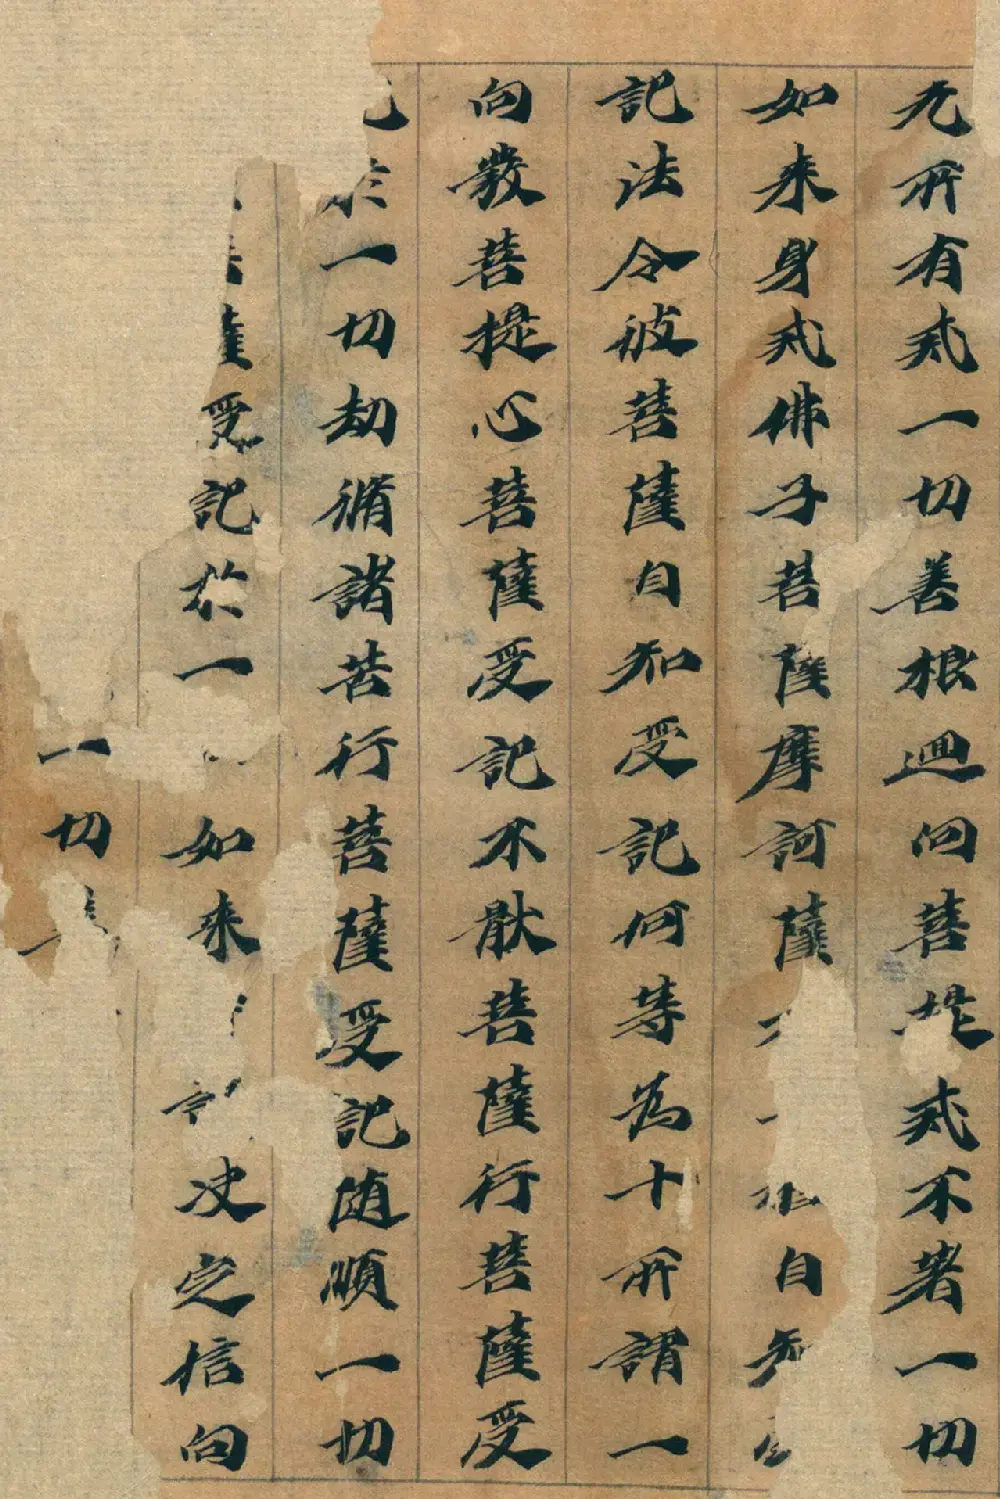 无所有戒一切善根迴向菩提戒不著一切
如来身戒佛子菩薩摩訶薩自知
記法令彼菩薩自知受記何等為十所謂一
向發菩提心菩薩受記不猒菩薩行菩薩受
於一切劫脩諸苦行菩薩受記随順一切
薩受記於一如来決定信向
一切